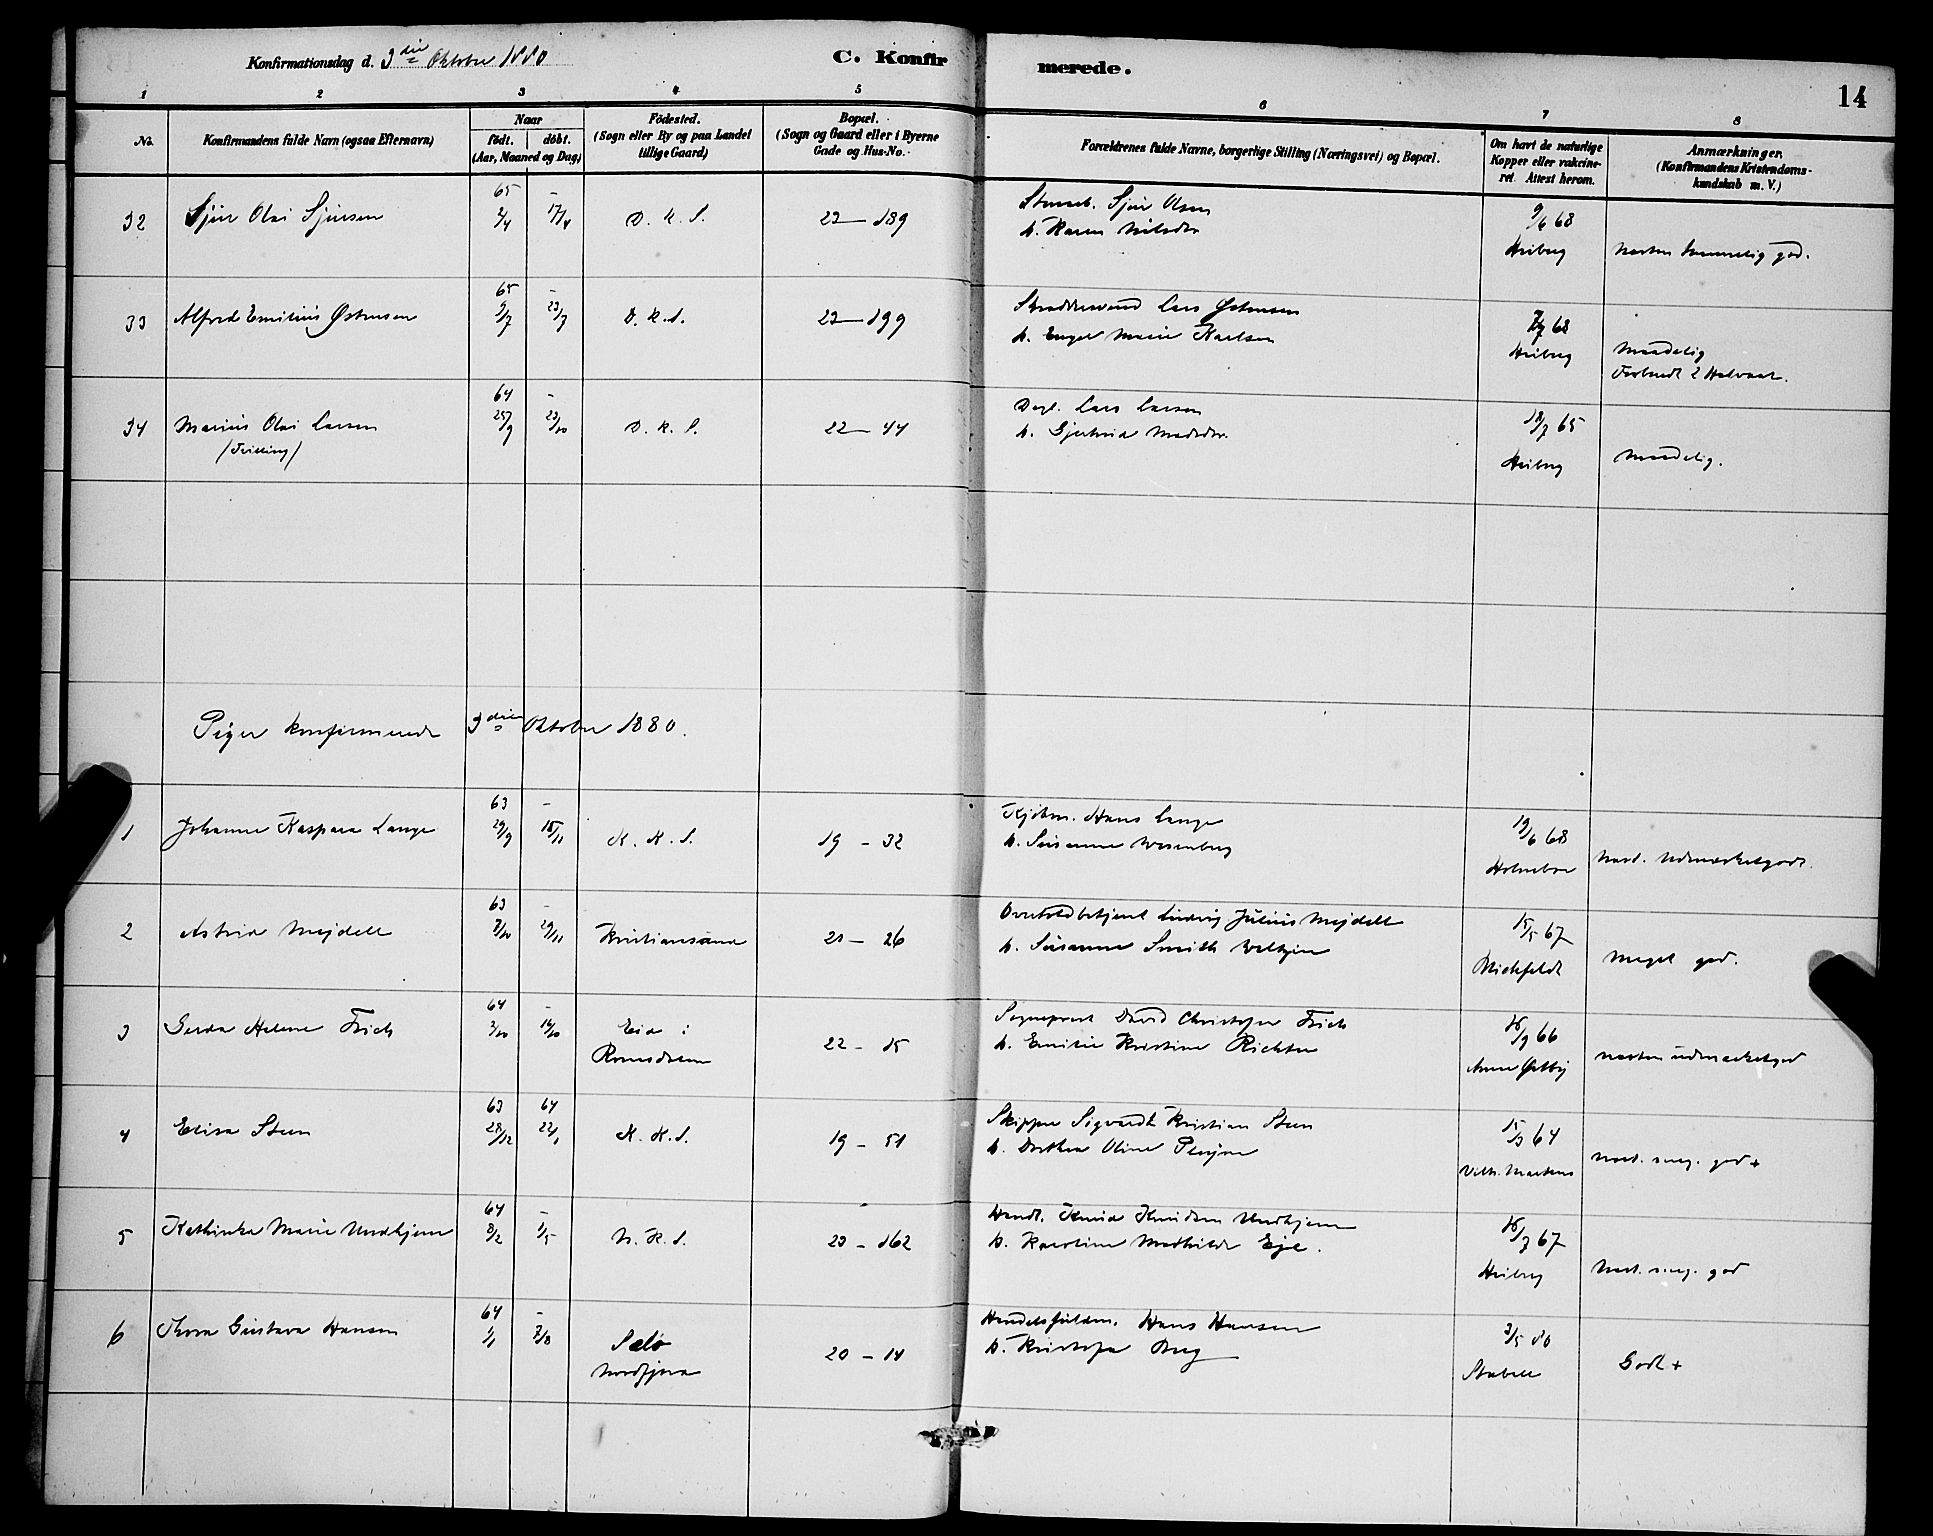 Konfirmationsdag d. 3die Oktober 1880
C. Konfirmerede.
14
1 2 3 4 5 6 7 8
No.
Konfirmandens fulde Navn (ogsaa Efternavn)
Naar
födt. döbt.
(Aar, Maaned og Dag)
Födested.
(Sogn eller By og paa Landet
tillige Gaard)
Bopæl.
(Sogn og Gaard eller i Byerne
Gade og Hus-No.
Forældrenes fulde Navne, borgerlige Stilling (Næringsvei) og Bopæl.
Om havt de naturlige
Kopper eller vakcine-
ret. Attest herom.
Anmærkninger.
(Konfirmandens Kristendoms-
kundskab m. V.)
32 Sjur Olai Sjursen
65 -
2/4 17/4
D. K. S.
23 — 189
Sjur Olsen
h. Karen Nilsdtr
9/6 68
Heiberg
næsten temmelig god.
33 Alfred Emilius Østensen
65 -
9/7 23/7
D. K. S.
23 — 199
Lars Østensen
h. Engel Marie Karlsen
68
Heiberg
Maadelig
34 Marius Olai Larsen
(Tvilling)
64 -
25/9 23/10
D. K. S.
22 — 44
Dagl. Lars Larsen
h. Gjertrud Madsdtr.
65
Heiberg
Maadelig.
Piger konfirmerede 3die Oktober 1880.
1 Johanne Kaspara Lange
63 -
29/9 15/11
K. K. S.
19 - 32
Kjöbm. Hans Lange
h. Susanne Wesenberg
19/6 68
Holmboe
Næst. Udmærketgodt.
2 Astrid Mejdell
63 -
7/10 29/11
Kristianssand
21 - 26
Overtoldbetjent Ludvig Julius Mejdell
h. Susanne Smith
15/5 67
Meget god.
3 Gerda Helene Frich
64 -
3/10 16/10
Eid i
Romsdalen
22 - 15
Sogneprest David Christofer Frich
h. Emilie Kristine Richter
16/9 66
næsten udmærketgod
4 Elisa Steen
63 64
28/12 22/1
N. K. S.
19 - 51
Skipper Sigvardt Kristian Steen
h. Dorthea Oline
15/3 64
Vilh. Martens
næst. meg. god +
5 Kathinka Marie Undhjem
64 -
8/2 1/5
N. K. S.
23 - 162
Handl. Knud Knudsen Undhjem
h. Karoline Mathilde
16/7 67
Heiberg
Næst. meg. god
6 Thora Gustava Hansen
64 -
1/1 7/8
Selö
Nordfjord
20 - 14
Handelsfuldm. Hans Hansen
h. Kristofa Berg
3/5 80
Stabell
Godt +